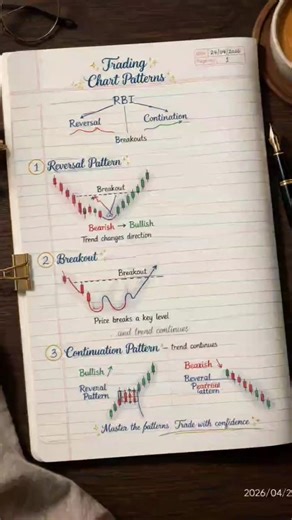 Trading
Chart Patterns
Date: 24/04/2026
1
RBI
Reversal
Contination
Breakouts
1 Reversal Pattern
Breakout
Bearish → Bullish
Trend changes direction
2 Breakout
Breakout
Price breaks a key level
and trend continues
3 Continuation Pattern – trend continues
Bullish ↗
Bearish ↘
Reveral
Pattern
Beveral
Pattern
Master the patterns Trade with confidence
2026/04/2